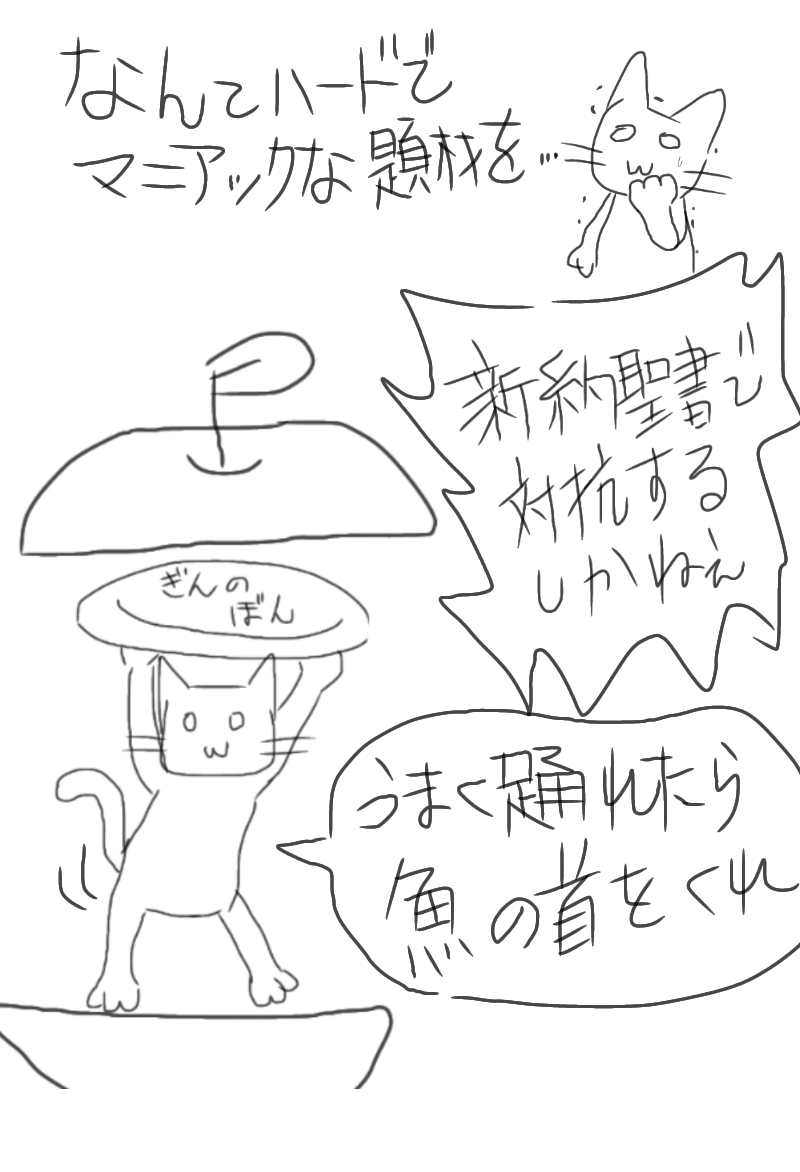 なんてハードで
マニアックな題材を…
新約聖書で
対抗する
しかねぇ
ぎんの
ぼん
うまく踊れたら
魚の首をくれ